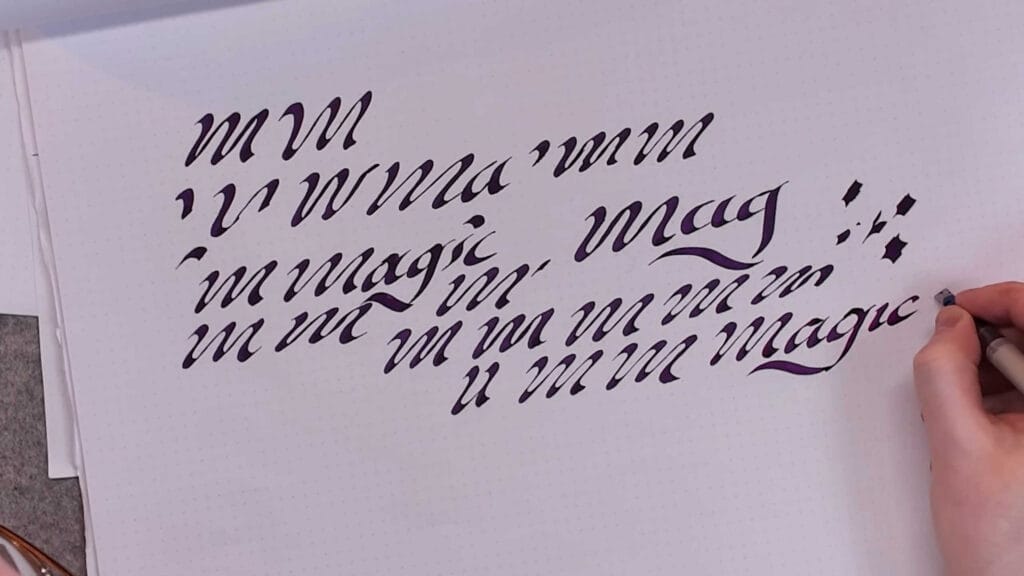 M M
M Ma m m
m magic m Mag
m m m m m m m
u m m Magic